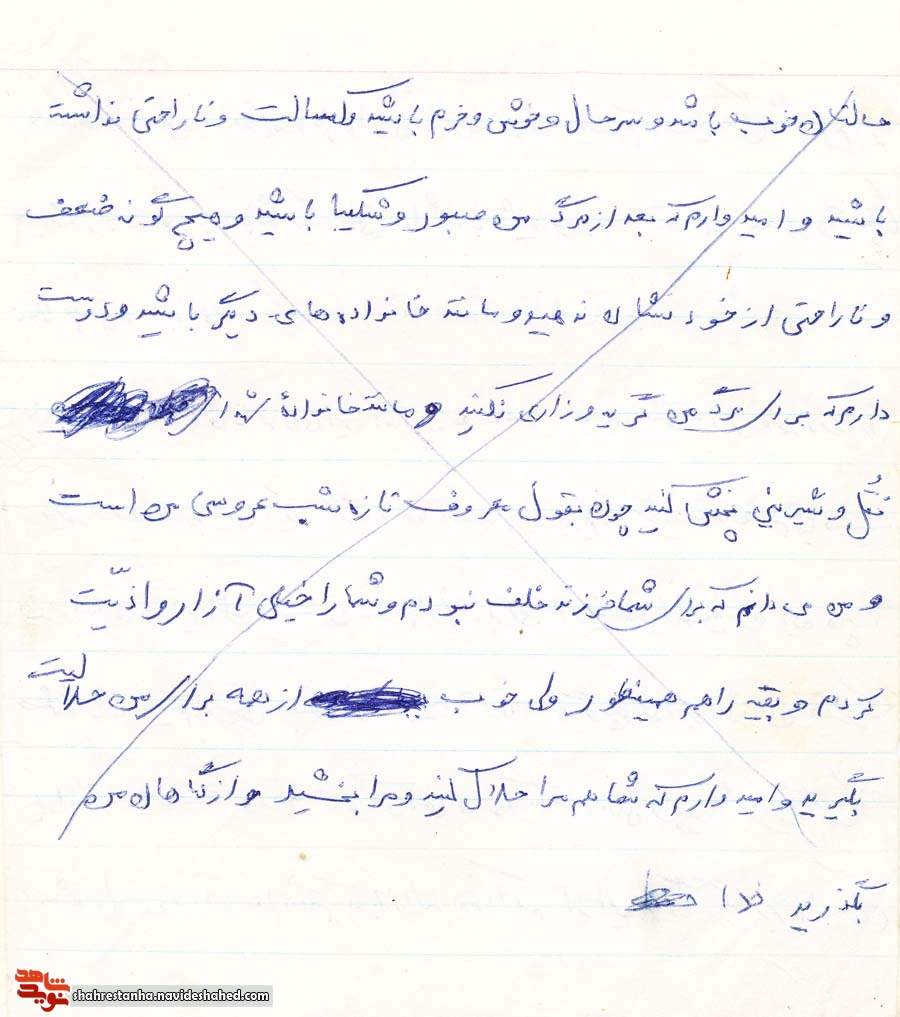 حالتان خوب باشد و سرحال و خوش و خرم باشید و کسالت و ناراحتی نداشته
باشید و امیدوارم که بعد از مرگ من صبور و شکیبا باشید و هیچ گونه ضعف
و ناراحتی از خود نشان ندهید و مانند خانواده های دیگر باشید و دوست
دارم که برای مرگ من گریه و زاری نکنید و مانند خانوادهٔ شهدا
نُقل و شیرینی پخش کنید چون بقول معروف تازه شب عروسی من است
و من می دانم که برای شما فرزند خلف نبودم و شما را خیلی آزار و اذیّت
کردم و بقیه را هم همینطور ولی خوب از همه برای من حلالیت
بگیرید و امیدوارم که شما هم مرا حلال کنید و مرا ببخشید و از گناهان من
بگذرید
شاهد
نوید
shahrestanha.navideshahed.com